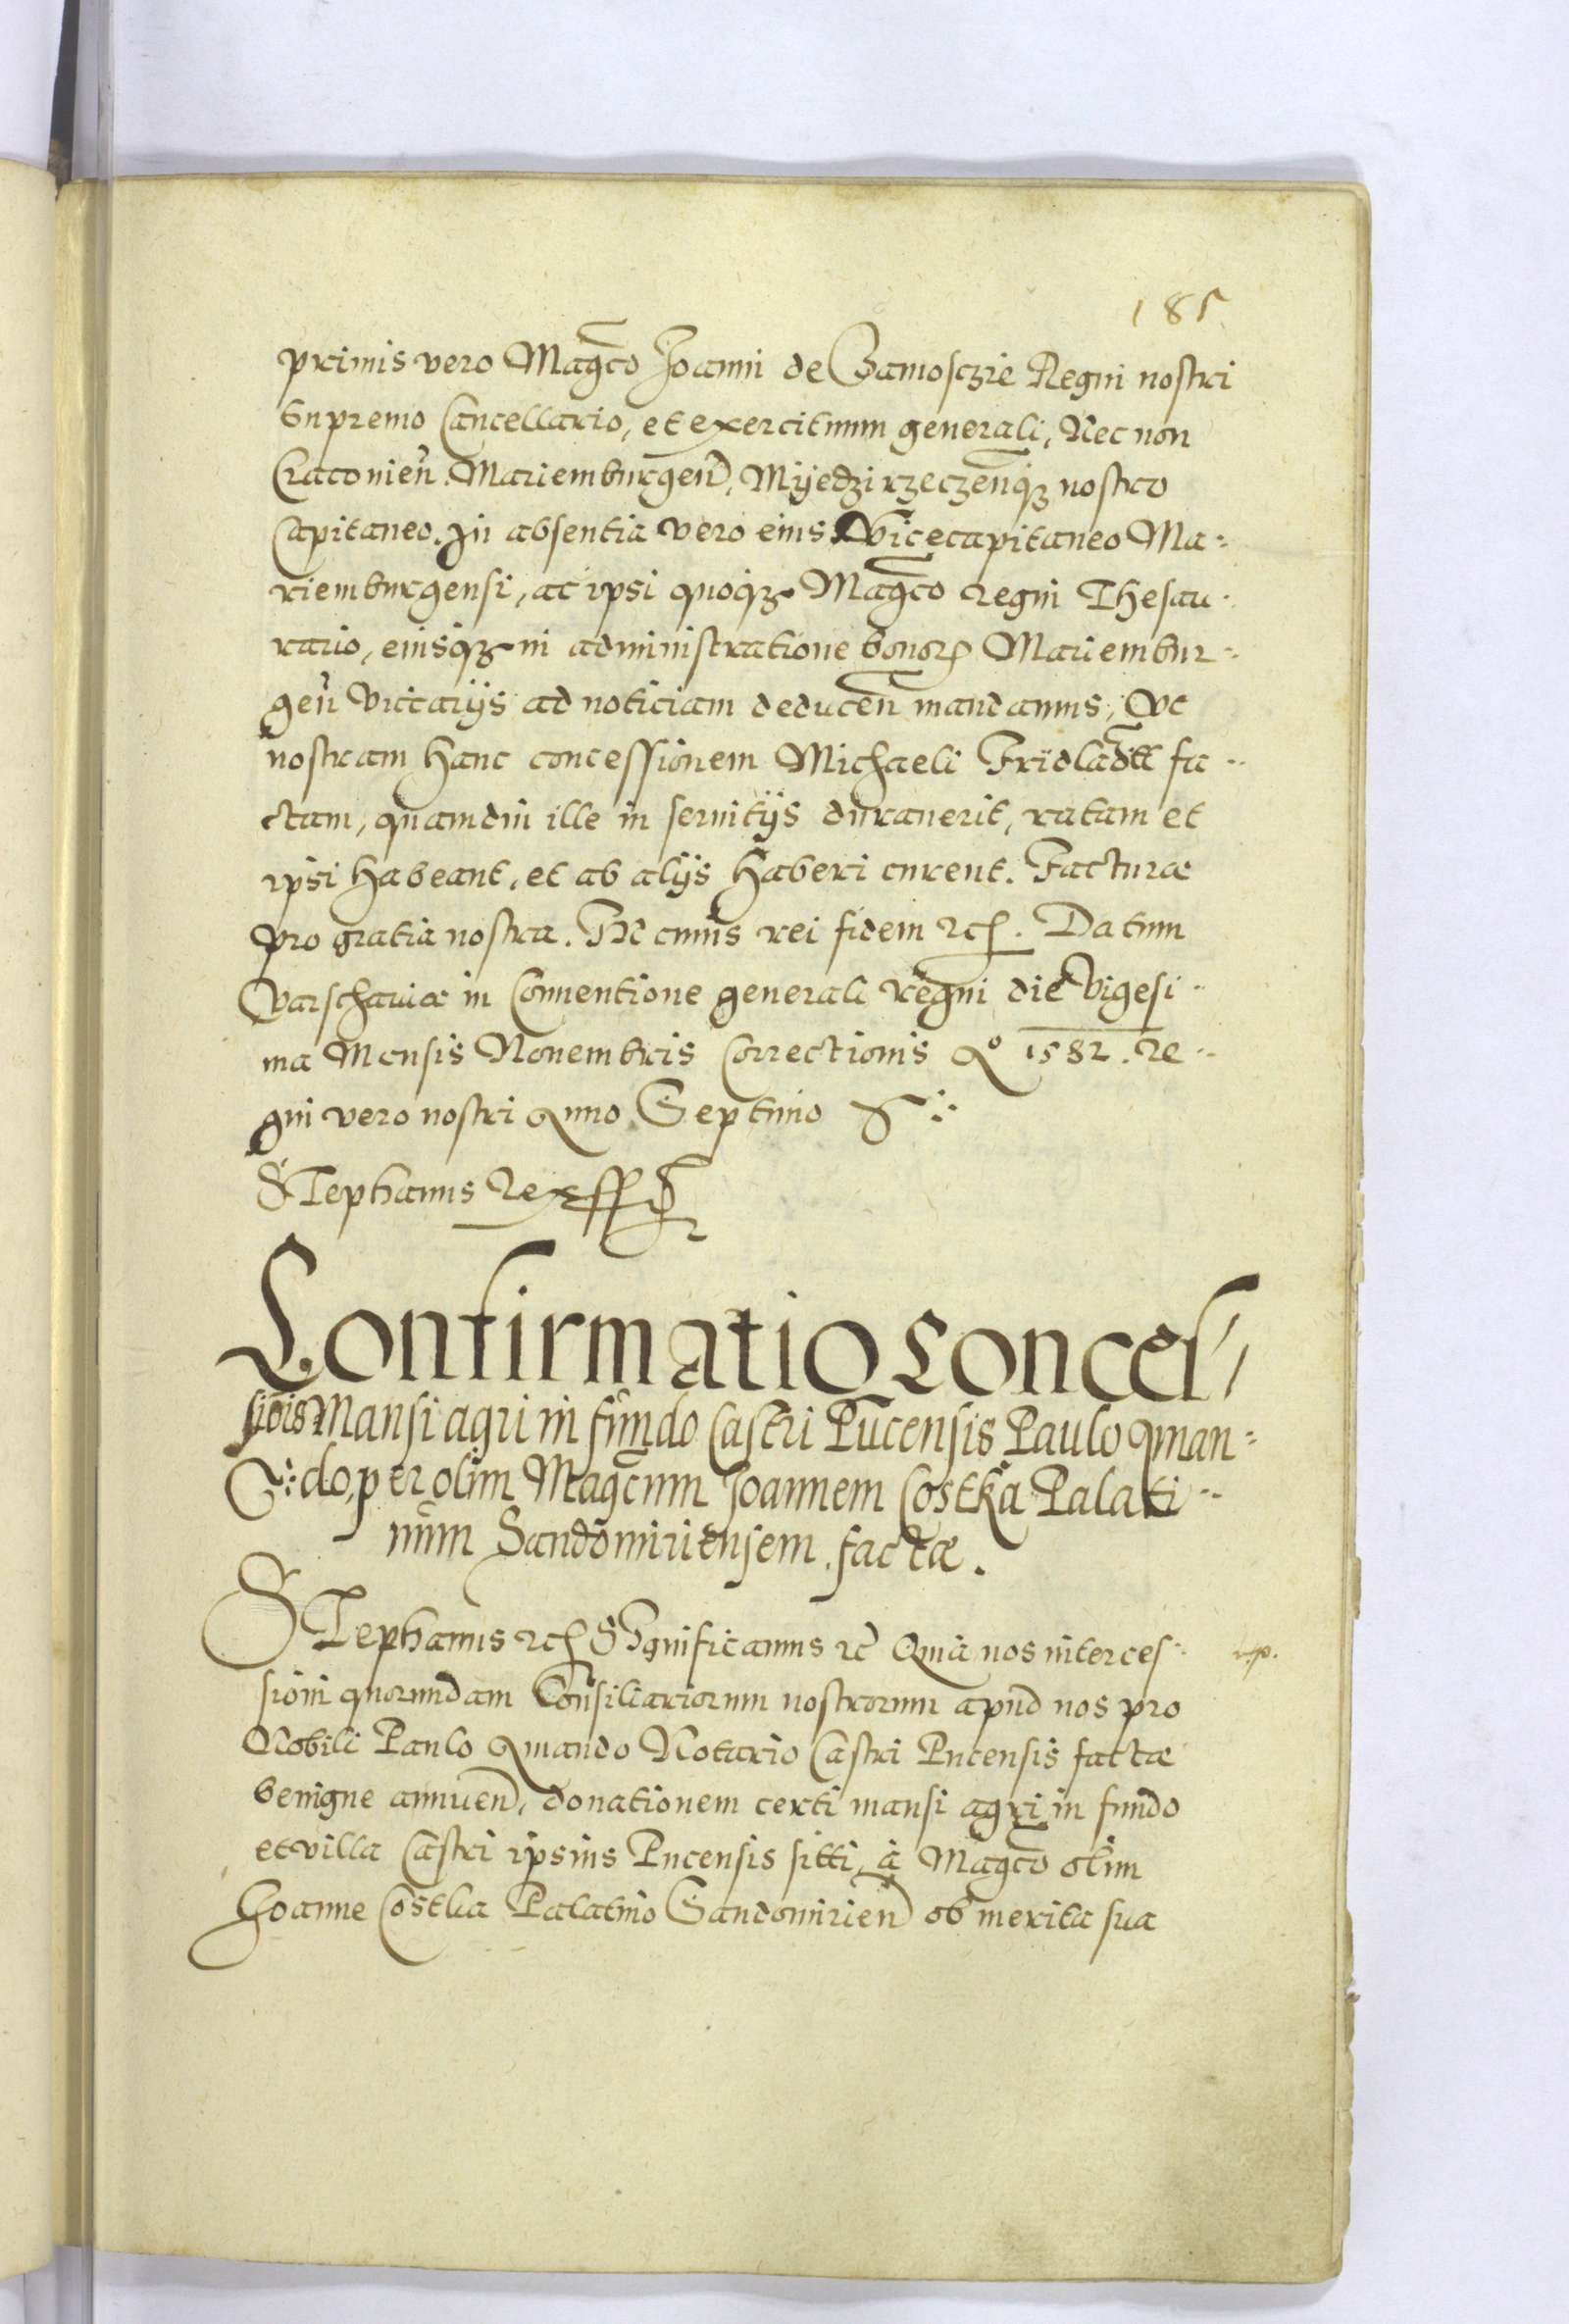 185
primis vero Magco Joanni de Zamosczie Regni nostri
Supremo Cancellario, et exercituum generali, Nec non
Cracovien. Mariemburgen, Myedzirzeczenq3 nostro
Capitaneo. In absentia vero eius Vicecapitaneo Ma=
riemburgensi, ac ipsi quoq3 Magco Regni Thesau=
rario, eiusq3 in administratione bonor Mariembur=
gen vicarijs ad noticiam deducen mandamus, Ut
nostram hanc concessionem Michaeli fa=
ctam, quamdiu ille in seruitijs durauerit, ratam et
ipsi habeant, et ab alijs haberi curent. Facturae
pro gratia nostra. In cuius rei fidem etc. Datum
Varschaviae in Conuentione generali regni die Vigesi=
ma Mensis Nouembris Correctionis Ao 1582. Re=
gni vero nostri Anno Septimo
Stephanus Rex sst
Confirmatio Conces/
siois Mansi agri in fundo Castri Pucensis Paulo Aman=
do, per olim Magcum Joannem Costka Palati=
num Sandomiriensem factae.
Stephanus etc Significamus etc Quia nos interces= r.p.
sioni quorundam Consiliariorum nostrorum apud nos pro
Nobili Paulo Amando Notario Castri Pucensis factae
benigne annuen, donationem certi mansi agri in fundo
et villa Castri ipsius Pucensis sitti, à Magco olim
Joanne Costka Palatino Sandomirien ob merita sua